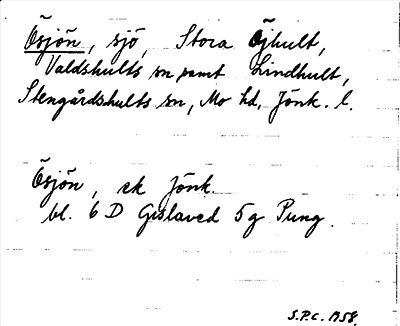 Ösjön, sjö, Stora Öjhult,
Valdshults sn samt Lindhult,
Stengårdshults sn, Mo hd, Jönk. l.
Ösjön, ek Jönk.
bl. 6 D Gislaved 5g Pung.
S.P.C. 1958.